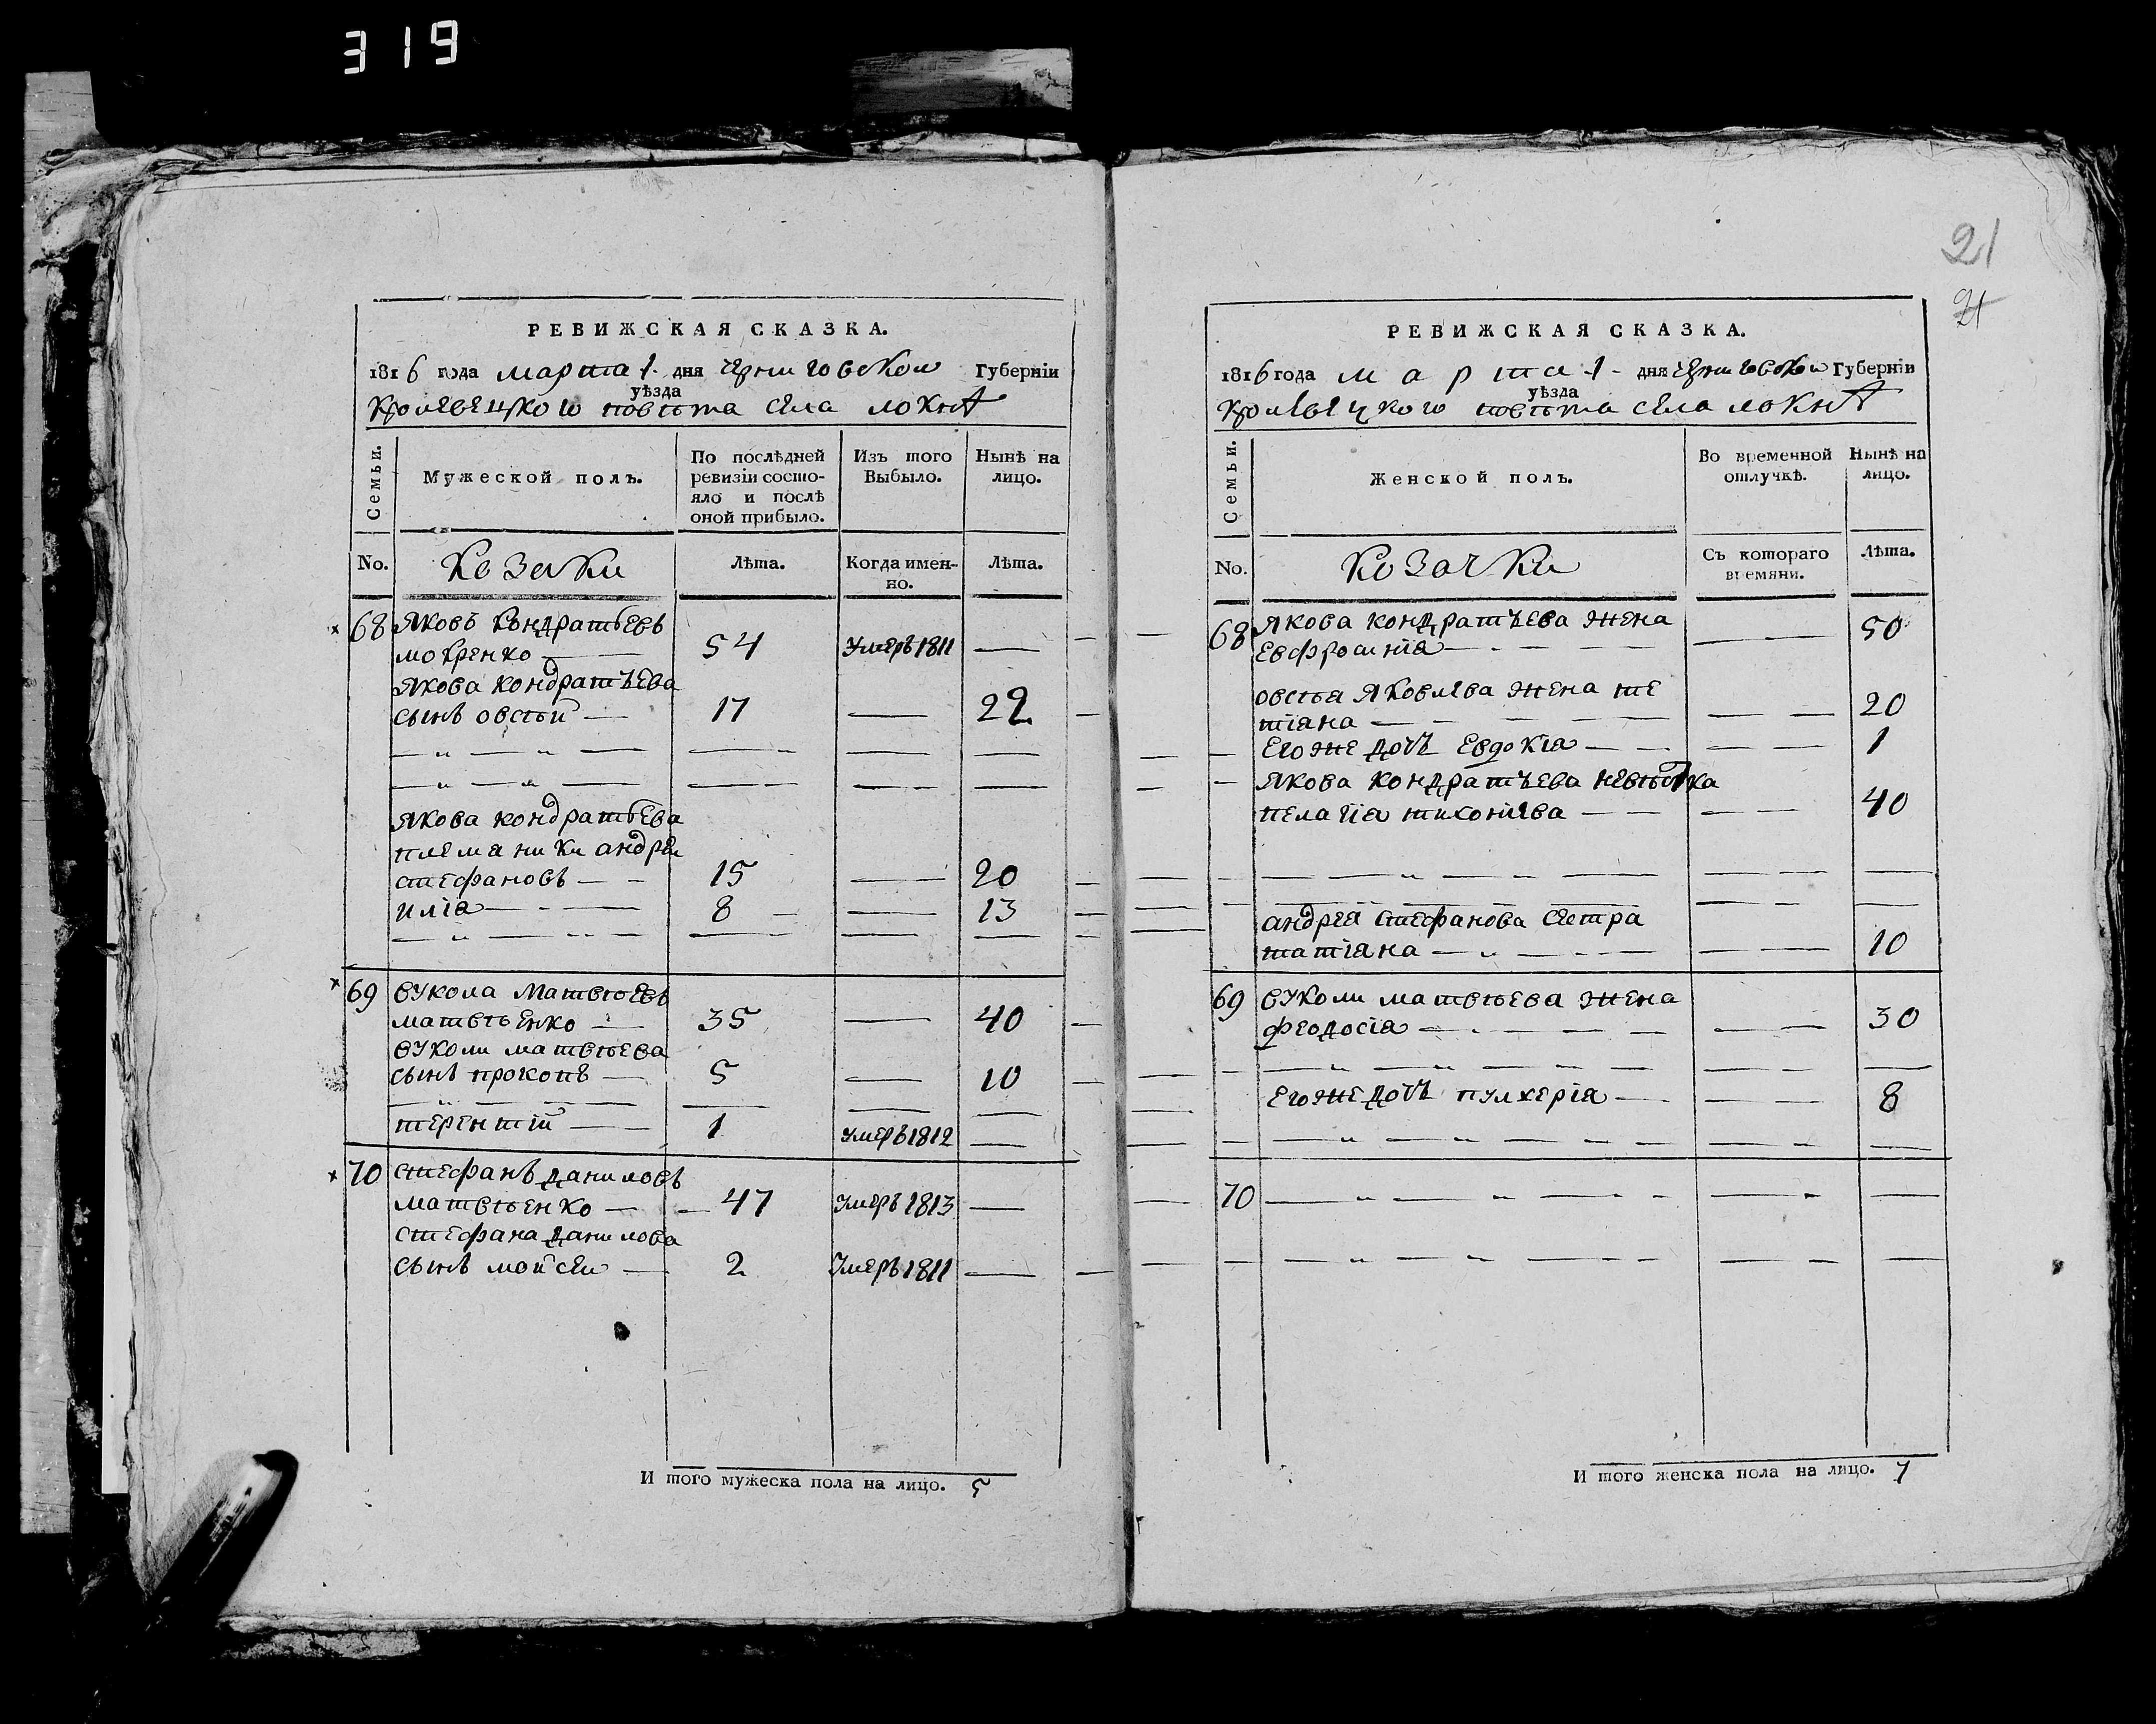 319
21
21
РЕВИЖСКАЯ СКАЗКА.
1816 года марта 1 дня Черниговской Губерніи
уѣзда
Кролевецкого повѣта села локна
Семьи.
Мужеской полъ.
По послѣдней ревизіи состо-
яло и послѣ
оной прибыло.
Изъ того
Выбыло.
Нынѣ на
лицо.
No.
Козаки
Лѣта.
Когда имен-
но.
Лѣта.
68 Яковъ Кондратьевъ
мокренко — 54 Умеръ 1811 —
Якова кондратъева
сынъ овсѣй — 17 — 22
Якова кондратьева
племаники андреи
стефановъ — 15 — 20
иліа — 8 — 13
69 вукола Матвѣевъ
матвѣенко — 35 — 40
вуколи матвѣева
сынъ прокопъ — 5 — 10
терентій — 1 Умеръ 1812 —
70 стефанъ даниловъ
матвѣенко — 47 Умеръ 1813 —
стефана данилова
сынъ мойсеи — 2 Умеръ 1811 —
И того мужеска пола на лицо. 5
РЕВИЖСКАЯ СКАЗКА.
1816 года марта 1 дня Черниговской Губерніи
уѣзда
Кролевецкого повѣта села локна
Семьи.
Женской полъ.
Во временной
отлучкѣ.
Нынѣ на
лицо.
No.
Козачки
Съ котораго
времяни.
Лѣта.
68 Якова кондратъева жена
евфросиніа — 50
овсѣя Яковлева жена те
тіана — 20
егоже дочъ евдокіа — 1
Якова кондратъева невѣстка
пелагіа тихоніева — 40
андрея стефанова сестра
татіана — 10
69 вуколи матвѣева жена
феодосіа — 30
егоже дочъ пулхеріа — 8
70
И того женска пола на лицо. 7